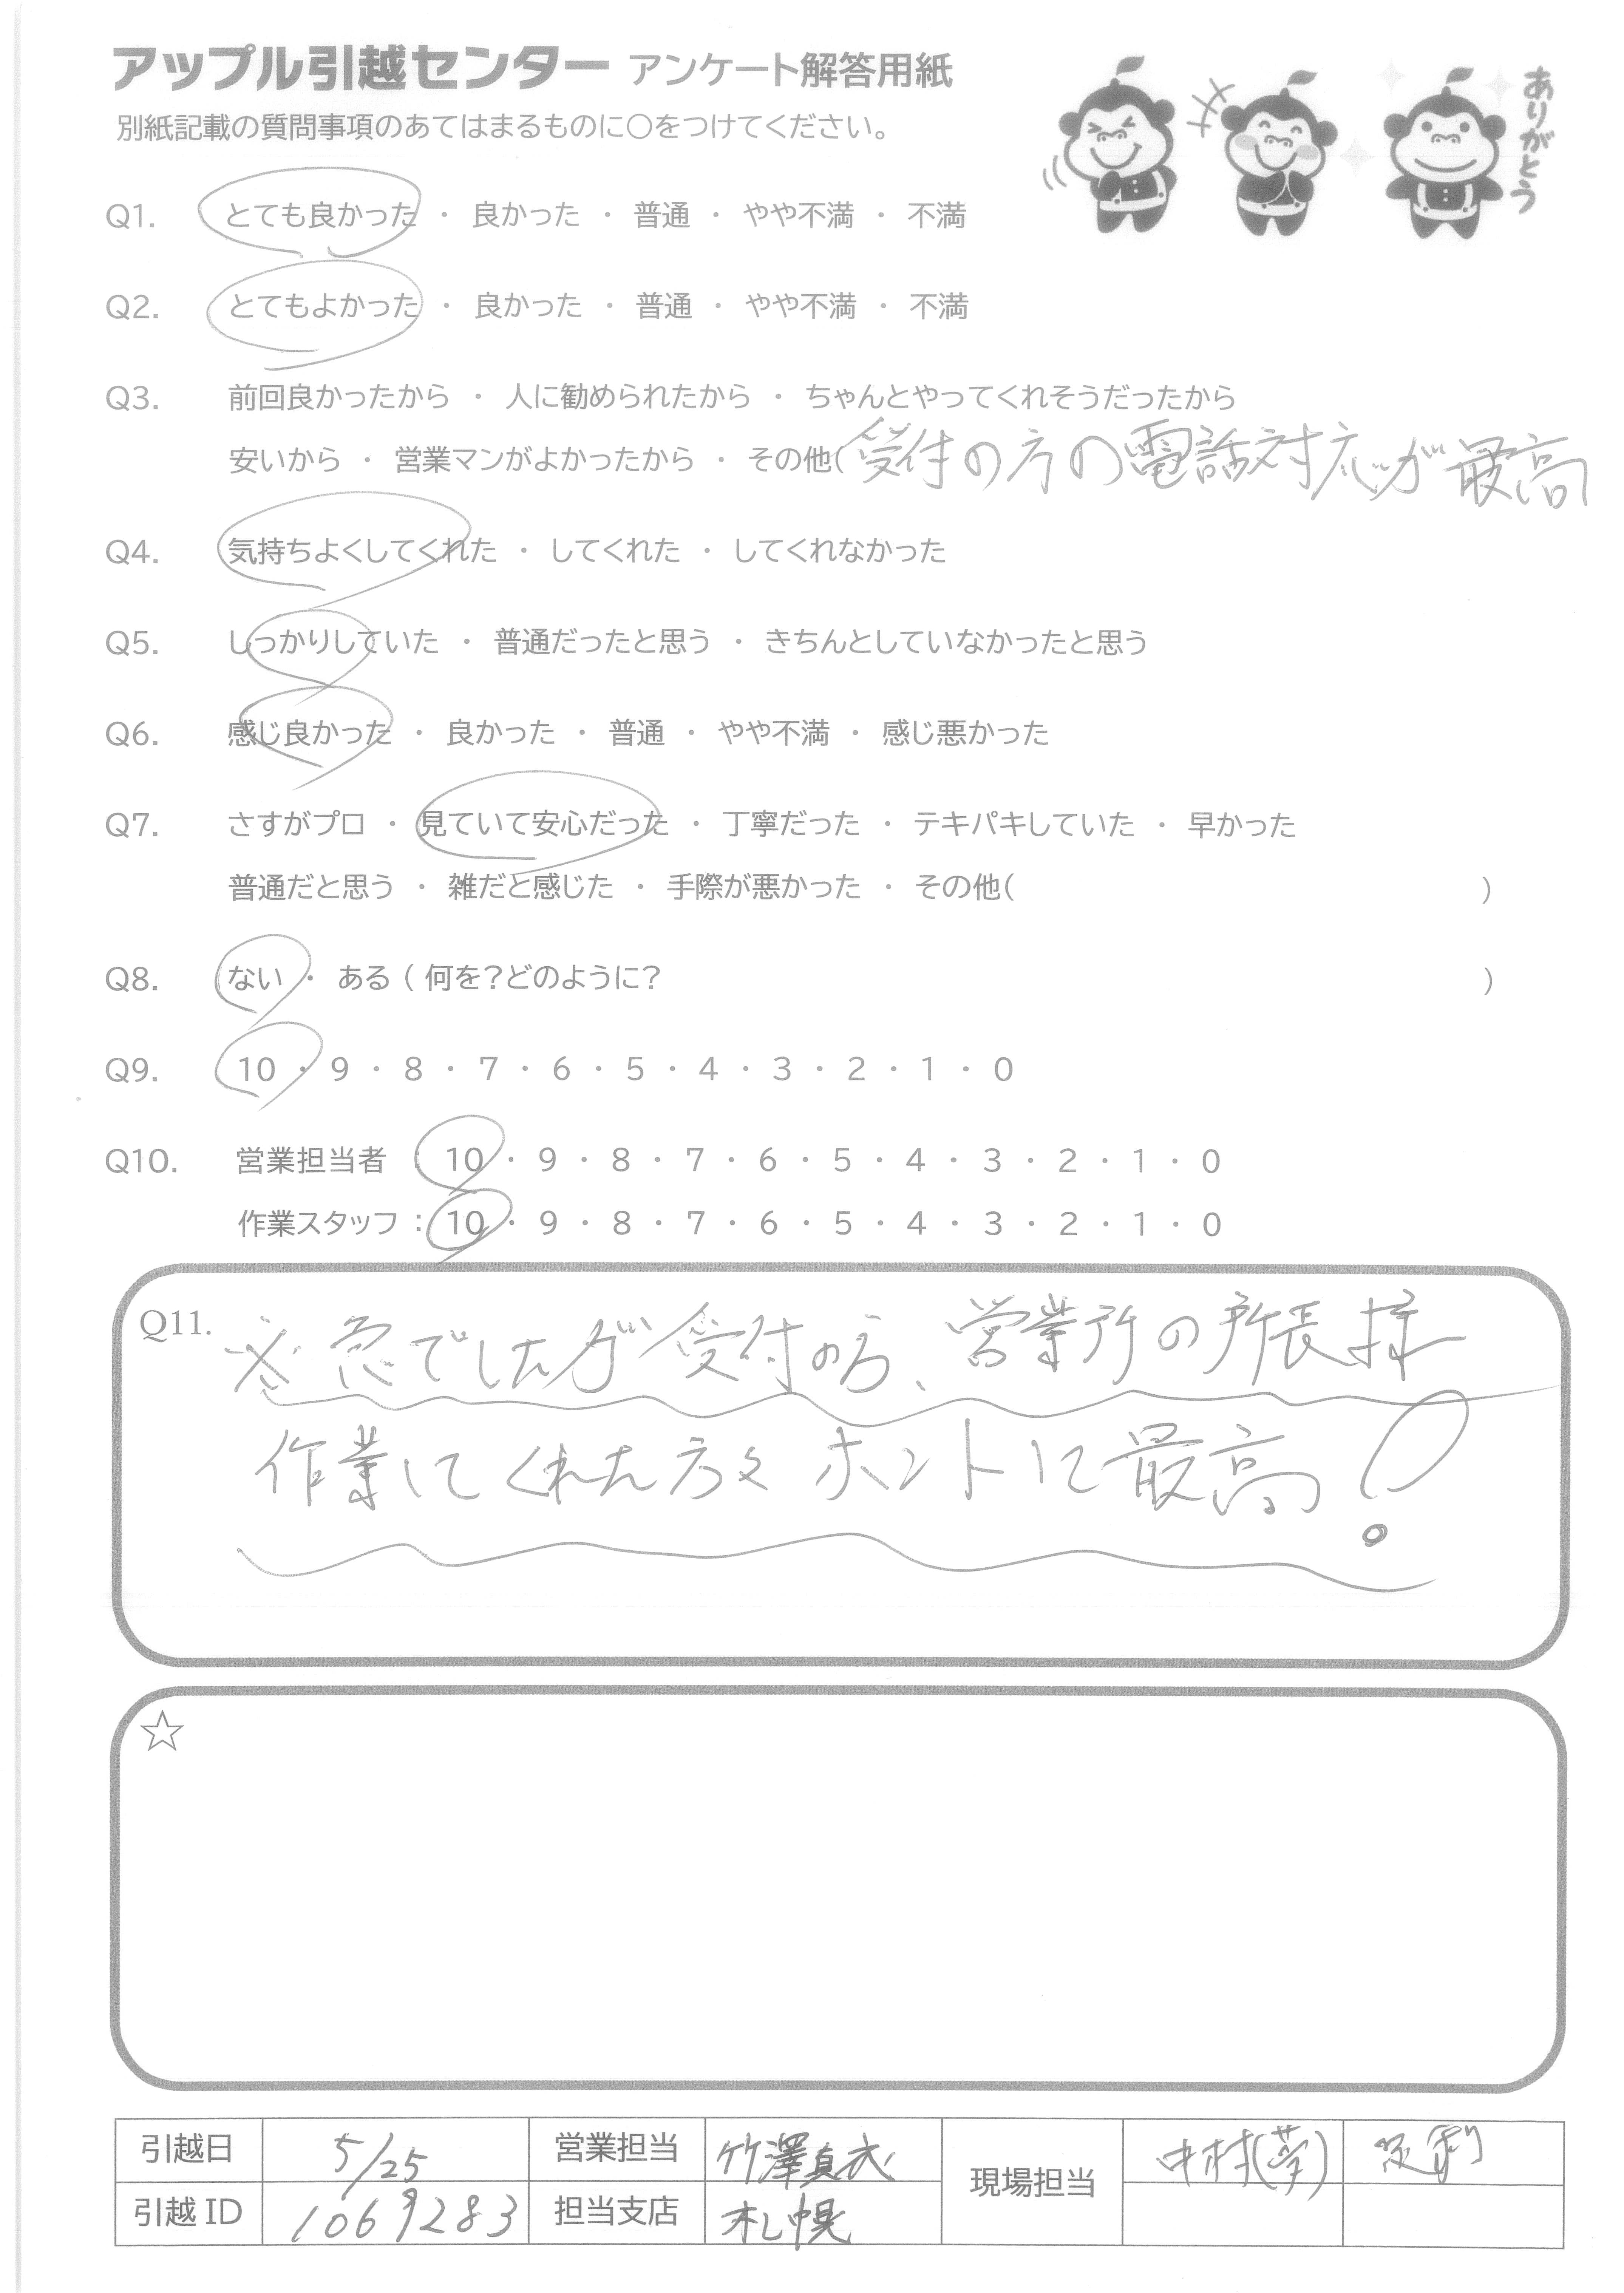 アップル引越センター アンケート解答用紙
別紙記載の質問事項のあてはまるものに〇をつけてください。
ありがとう
Q1. とても良かった ・ 良かった ・ 普通 ・ やや不満 ・ 不満
Q2. とてもよかった ・ 良かった ・ 普通 ・ やや不満 ・ 不満
Q3. 前回良かったから ・ 人に勧められたから ・ ちゃんとやってくれそうだったから
安いから ・ 営業マンがよかったから ・ その他( 受付の方の電話対応が最高
Q4. 気持ちよくしてくれた ・ してくれた ・ してくれなかった
Q5. しっかりしていた ・ 普通だったと思う ・ きちんとしていなかったと思う
Q6. 感じ良かった ・ 良かった ・ 普通 ・ やや不満 ・ 感じ悪かった
Q7. さすがプロ ・ 見ていて安心だった ・ 丁寧だった ・ テキパキしていた ・ 早かった
普通だと思う ・ 雑だと感じた ・ 手際が悪かった ・ その他( )
Q8. ない ・ ある ( 何を?どのように? )
Q9. 10 ・ 9 ・ 8 ・ 7 ・ 6 ・ 5 ・ 4 ・ 3 ・ 2 ・ 1 ・ 0
Q10. 営業担当者 : 10 ・ 9 ・ 8 ・ 7 ・ 6 ・ 5 ・ 4 ・ 3 ・ 2 ・ 1 ・ 0
作業スタッフ : 10 ・ 9 ・ 8 ・ 7 ・ 6 ・ 5 ・ 4 ・ 3 ・ 2 ・ 1 ・ 0
Q11. 急でしたが受付の方、営業所の所長様
作業してくれた方々 ホントに最高!
☆
引越日 5/25 営業担当 竹澤真衣 現場担当 中村(夢)
引越 ID 1069283 担当支店 札幌